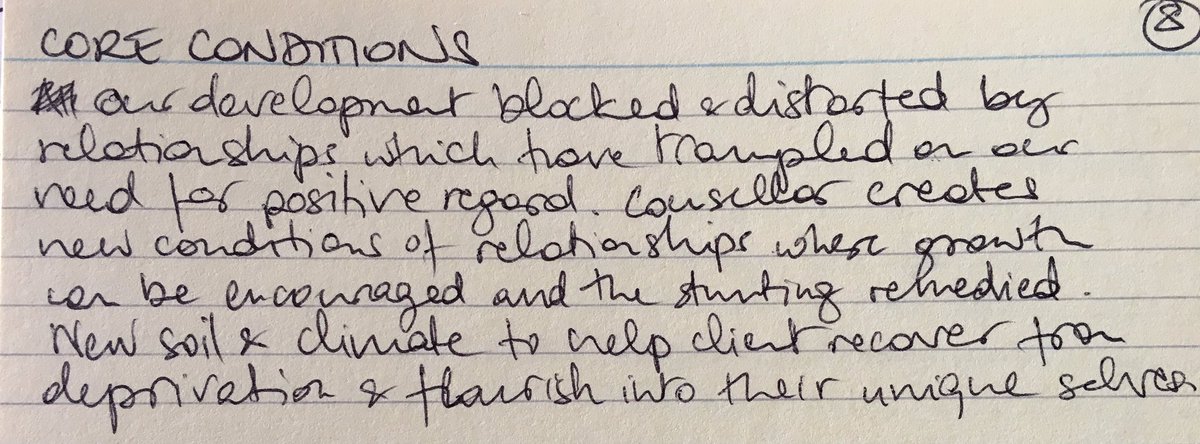 8
CORE CONDITIONS
our development blocked & distorted by
relationships which have trampled on our
need for positive regard. Counsellor creates
new conditions of relationships where growth
can be encouraged and the stunting remedied.
New soil & climate to help client recover from
deprivation & flourish into their unique selves